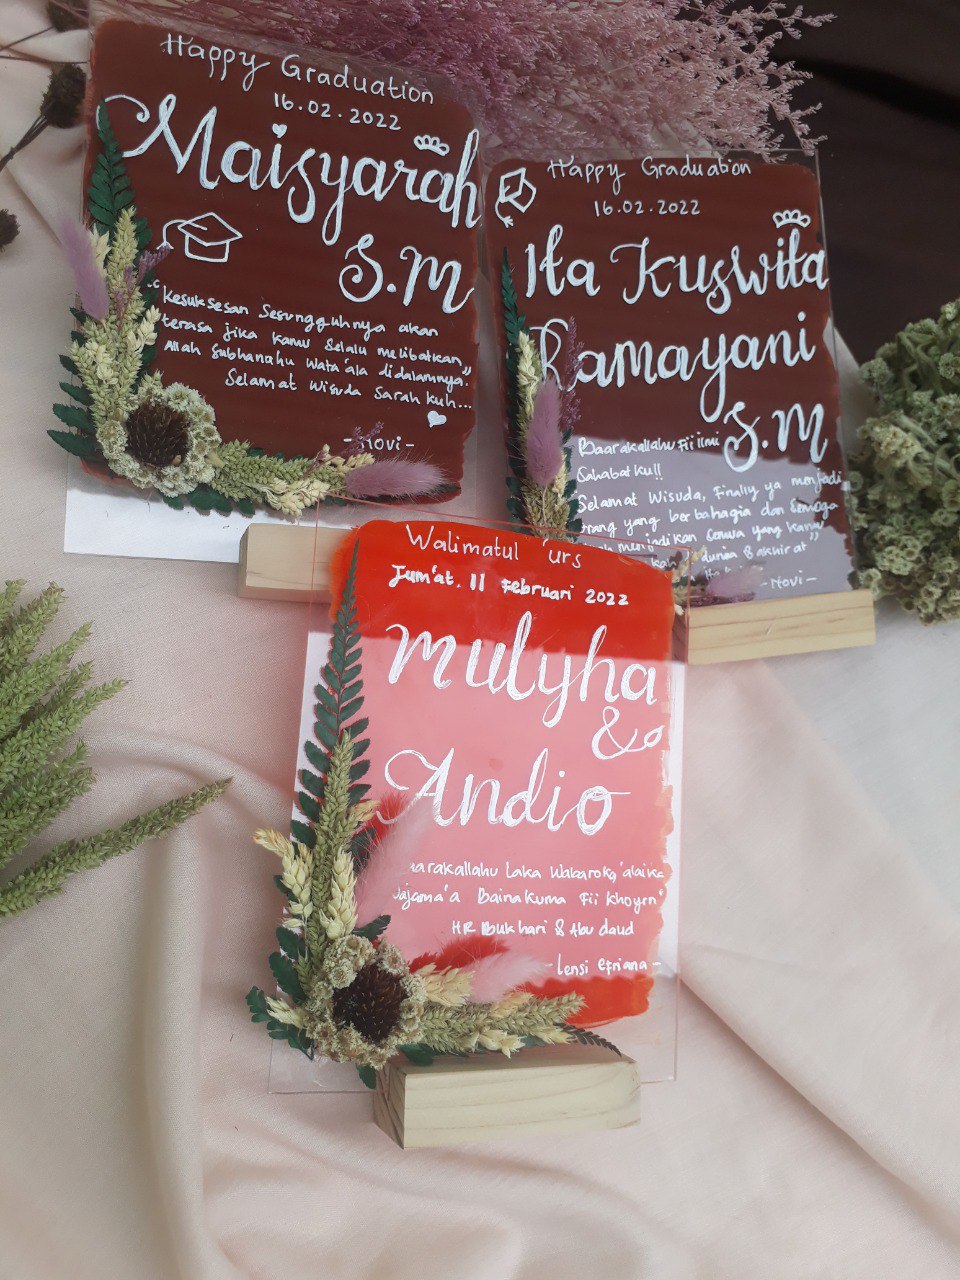 Happy Graduation
16.02.2022
Maisyarah
S.M
"Kesuksesan Sesungguhnya akan
terasa jika kamu Selalu melibatkan
Allah Subhanahu Wata'ala didalamnya."
Selamat Wisuda Sarah kuh...
-Novi-
Happy Graduation
16.02.2022
Ita Kuswita
Ramayani
S.M
Baarakallahu Fii ilmi
Sahabatku!!
Selamat Wisuda, Finally ya menjadi
orang yang berbahagia dan Semoga
menjadikan Semua yang kamu
dunia & akhirat"
-Novi-
Walimatul 'urs
Jum'at. 11 Februari 2022
Mulyha
&
Andio
Baarakallahu Laka Wabaroka 'alaika
Wajama'a Bainakuma Fii Khoyrn'
HR Bukhari & Abu daud
-Lensi Efriana-